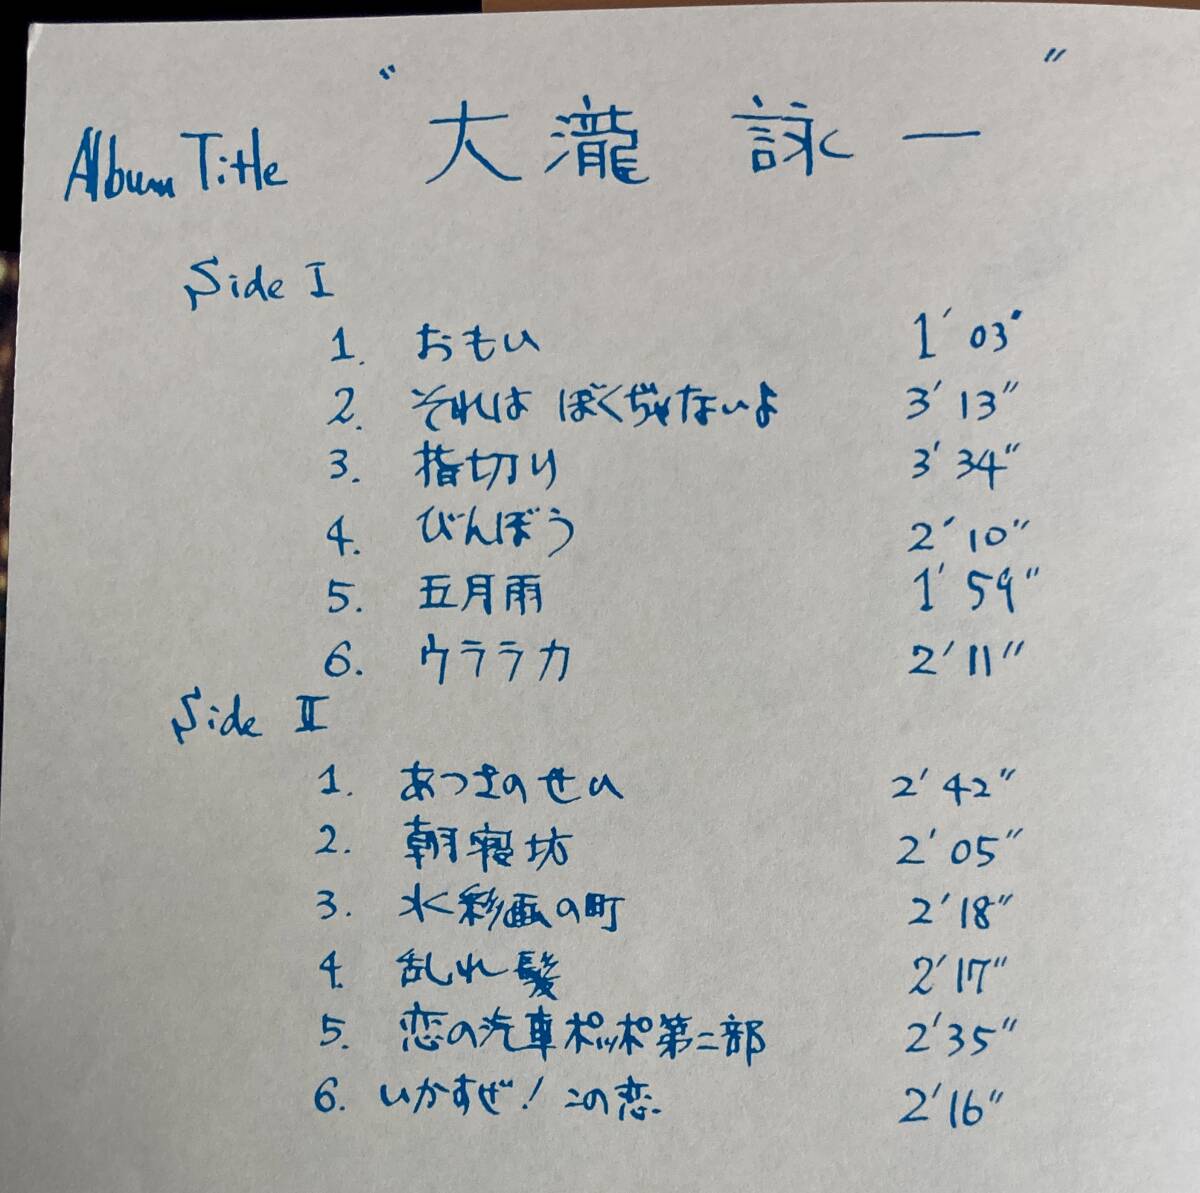 Album Title “大瀧 詠一”
Side I
1. おもい 1′03″
2. それは ぼくぢゃないよ 3′13″
3. 指切り 3′34″
4. びんぼう 2′10″
5. 五月雨 1′59″
6. ウララカ 2′11″
Side II
1. あつさのせい 2′42″
2. 朝寝坊 2′05″
3. 水彩画の町 2′18″
4. 乱れ髪 2′17″
5. 恋の汽車ポッポ第二部 2′35″
6. いかすぜ! この恋. 2′16″